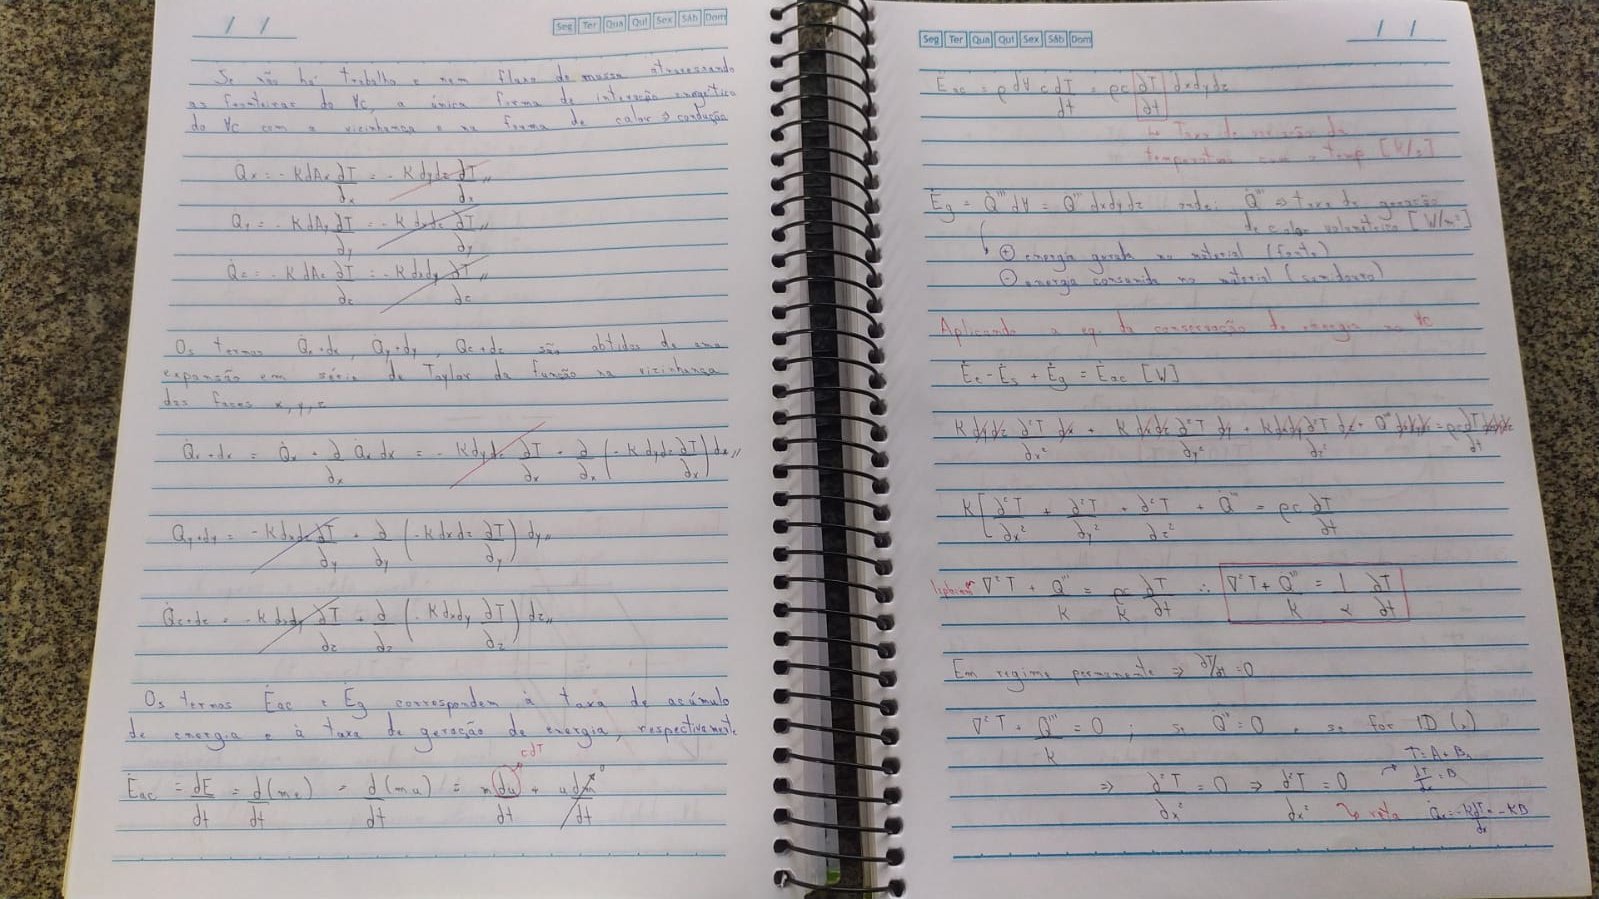 / /
Seg Ter Qua Qui Sex Sáb Dom
Se não há trabalho e nem fluxo de massa atravessando
as fronteiras do VC, a única forma de interação energética
do VC com a vizinhança é na forma de calor ⇒ condução
Q̇x = - K dAx ∂T/∂x = - K dydz ∂T/∂x //
Q̇y = - K dAy ∂T/∂y = - K dxdz ∂T/∂y //
Q̇z = - K dAz ∂T/∂z = - K dxdy ∂T/∂z //
Os termos Q̇x+dx, Q̇y+dy, Q̇z+dz são obtidos de uma
expansão em série de Taylor da função na vizinhança
das faces x, y, z
Q̇x+dx = Q̇x + ∂/∂x Q̇x dx = - K dydz ∂T/∂x + ∂/∂x (- K dydz ∂T/∂x) dx //
Q̇y+dy = - K dxdz ∂T/∂y + ∂/∂y (- K dxdz ∂T/∂y) dy //
Q̇z+dz = - K dxdy ∂T/∂z + ∂/∂z (- K dxdy ∂T/∂z) dz //
Os termos Ėac e Ėg correspondem à taxa de acúmulo
de energia e à taxa de geração de energia, respectivamente
cdT
Ėac = dE/dt = d/dt (me) = d/dt (mu) = m du/dt + u dm/dt 0
Seg Ter Qua Qui Sex Sáb Dom
/ /
Ėac = ρ dV c dT/dt = ρc ∂T/∂t dxdydz
↳ Taxa de variação da
temperatura com o temp [K/s]
Ėg = Q̇''' dV = Q̇''' dxdydz onde: Q̇''' ⇒ taxa de geração
de calor volumétrico [W/m³]
⊕ energia gerada no material (fonte)
⊖ energia consumida no material (sumidouro)
Aplicando a eq. da conservação de energia no VC
Ėe - Ės + Ėg = Ėac [W]
K dydz ∂²T/∂x² dx + K dxdz ∂²T/∂y² dy + K dxdy ∂²T/∂z² dz + Q̇''' dxdydz = ρc ∂T/∂t dxdydz
K [∂²T/∂x² + ∂²T/∂y² + ∂²T/∂z² + Q̇''' = ρc ∂T/∂t
∇²T + Q̇'''/K = ρc/K ∂T/∂t ∴ ∇²T + Q̇'''/K = 1/α ∂T/∂t
Em regime permanente ⇒ ∂T/∂t = 0
∇²T + Q̇'''/K = 0 , se Q̇''' = 0 , se for 1D (x)
T = A + Bx
⇒ ∂²T/∂x² = 0 ⇒ d²T/dx² = 0 → dT/dx = B
↳ reta Q̇x = -K dT/dx = -KB